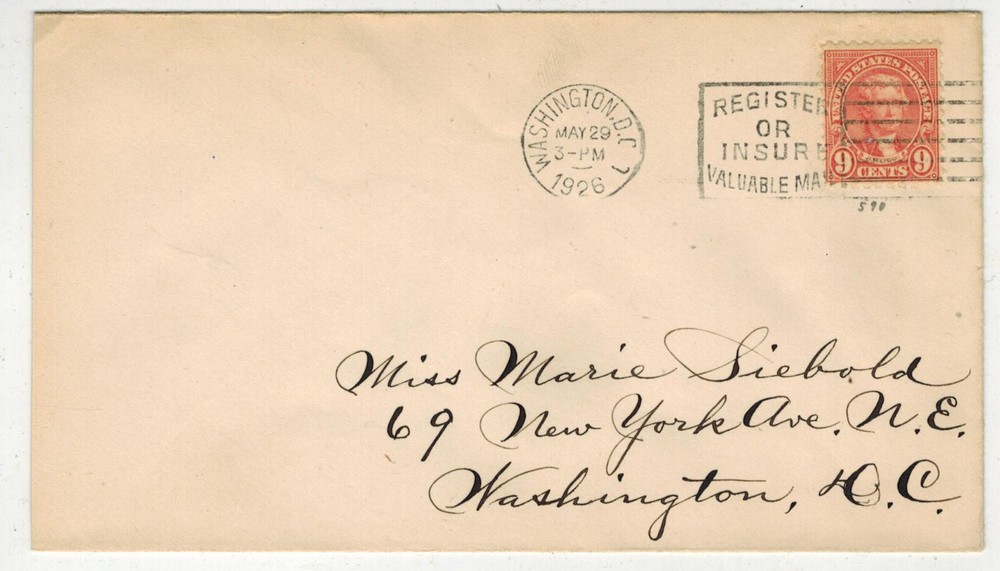 WASHINGTON, D.C. 1
MAY 29
3-PM
1926
REGISTER
OR
INSURE
VALUABLE MA
UNITED STATES POSTAGE
9 CENTS 9
590
Miss Marie Siebold
69 New York Ave. N.E.
Washington, D.C.